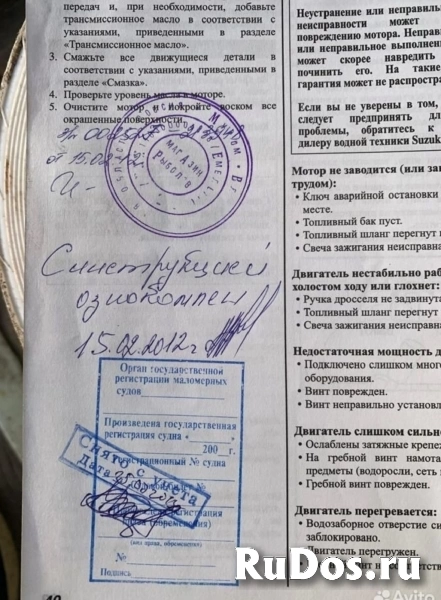 передач и, при необходимости, добавьте
трансмиссионное масло в соответствии с
указаниями, приведенными в разделе
«Трансмиссионное масло».
3. Смажьте все движущиеся детали в
соответствии с указаниями, приведенными в
разделе «Смазка».
4. Проверьте уровень масла в моторе.
5. Очистите мотор и покройте воском все
окрашенные поверхности.
от 15.02.12
МАГАЗИН
РЫБОЛОВ
С инструкцией
ознокомлен
15.02.2012г
Орган государственной
регистрации маломерных
судов
Произведена государственная
регистрация судна «
200 г.
Регистрационный № судна
Снято с учета
Дата
(без права, обременения)
№
Подпись
40
Неустранение или неправиль
неисправности может
повреждению мотора. Неправ
или неправильное выполнен
может скорее навредить
починить его. На такие
гарантия может не распростра
Если вы не уверены в том,
следует предпринять дл
проблемы, обратитесь к
дилеру водной техники Suzuk
Мотор не заводится (или зав
трудом):
• Ключ аварийной остановки
месте.
• Топливный бак пуст.
• Топливный шланг перегнут и
• Свеча зажигания неисправна
Двигатель нестабильно раб
холостом ходу или глохнет:
• Ручка дросселя не задвинута
• Топливный шланг перегнут
• Свеча зажигания неисправна
Недостаточная мощность д
• Подключено слишком много
оборудования.
• Винт поврежден.
• Винт неправильно установл
Двигатель слишком сильн
• Ослаблены затяжные крепеж
• На гребной винт намота
предметы (водоросли, сеть
• Гребной винт поврежден.
Двигатель перегревается:
• Водозаборное отверстие си
заблокировано.
• Двигатель перегружен.
RuDos.ru
Avito